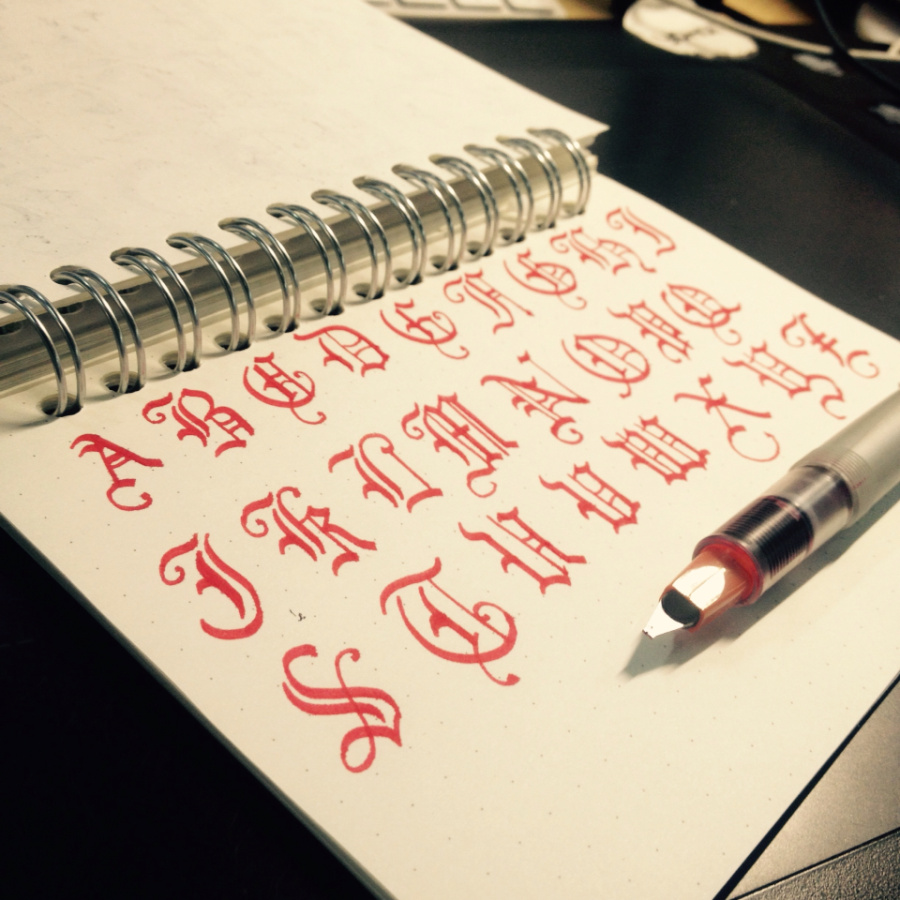 A B C D E F G H I
J K L M N O P Q
S T U V W X Y Z